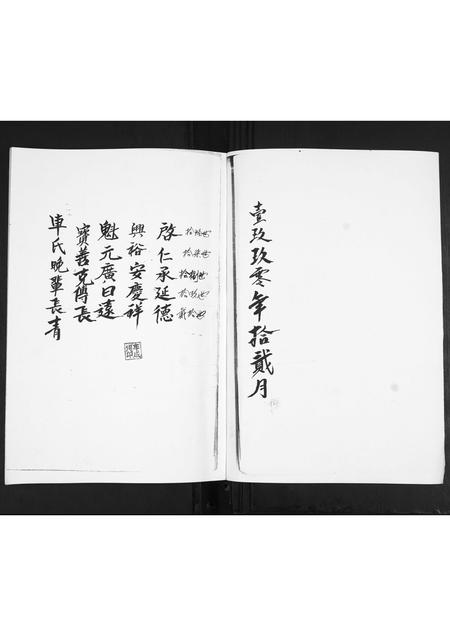 壹玖玖零年拾貳月
拾陸世
拾柒世
拾捌世
拾玖世
貳拾世
啓仁承延德
興裕安慶祥
魁元廣曰遠
寶善克傳長
車氏晚輩長青